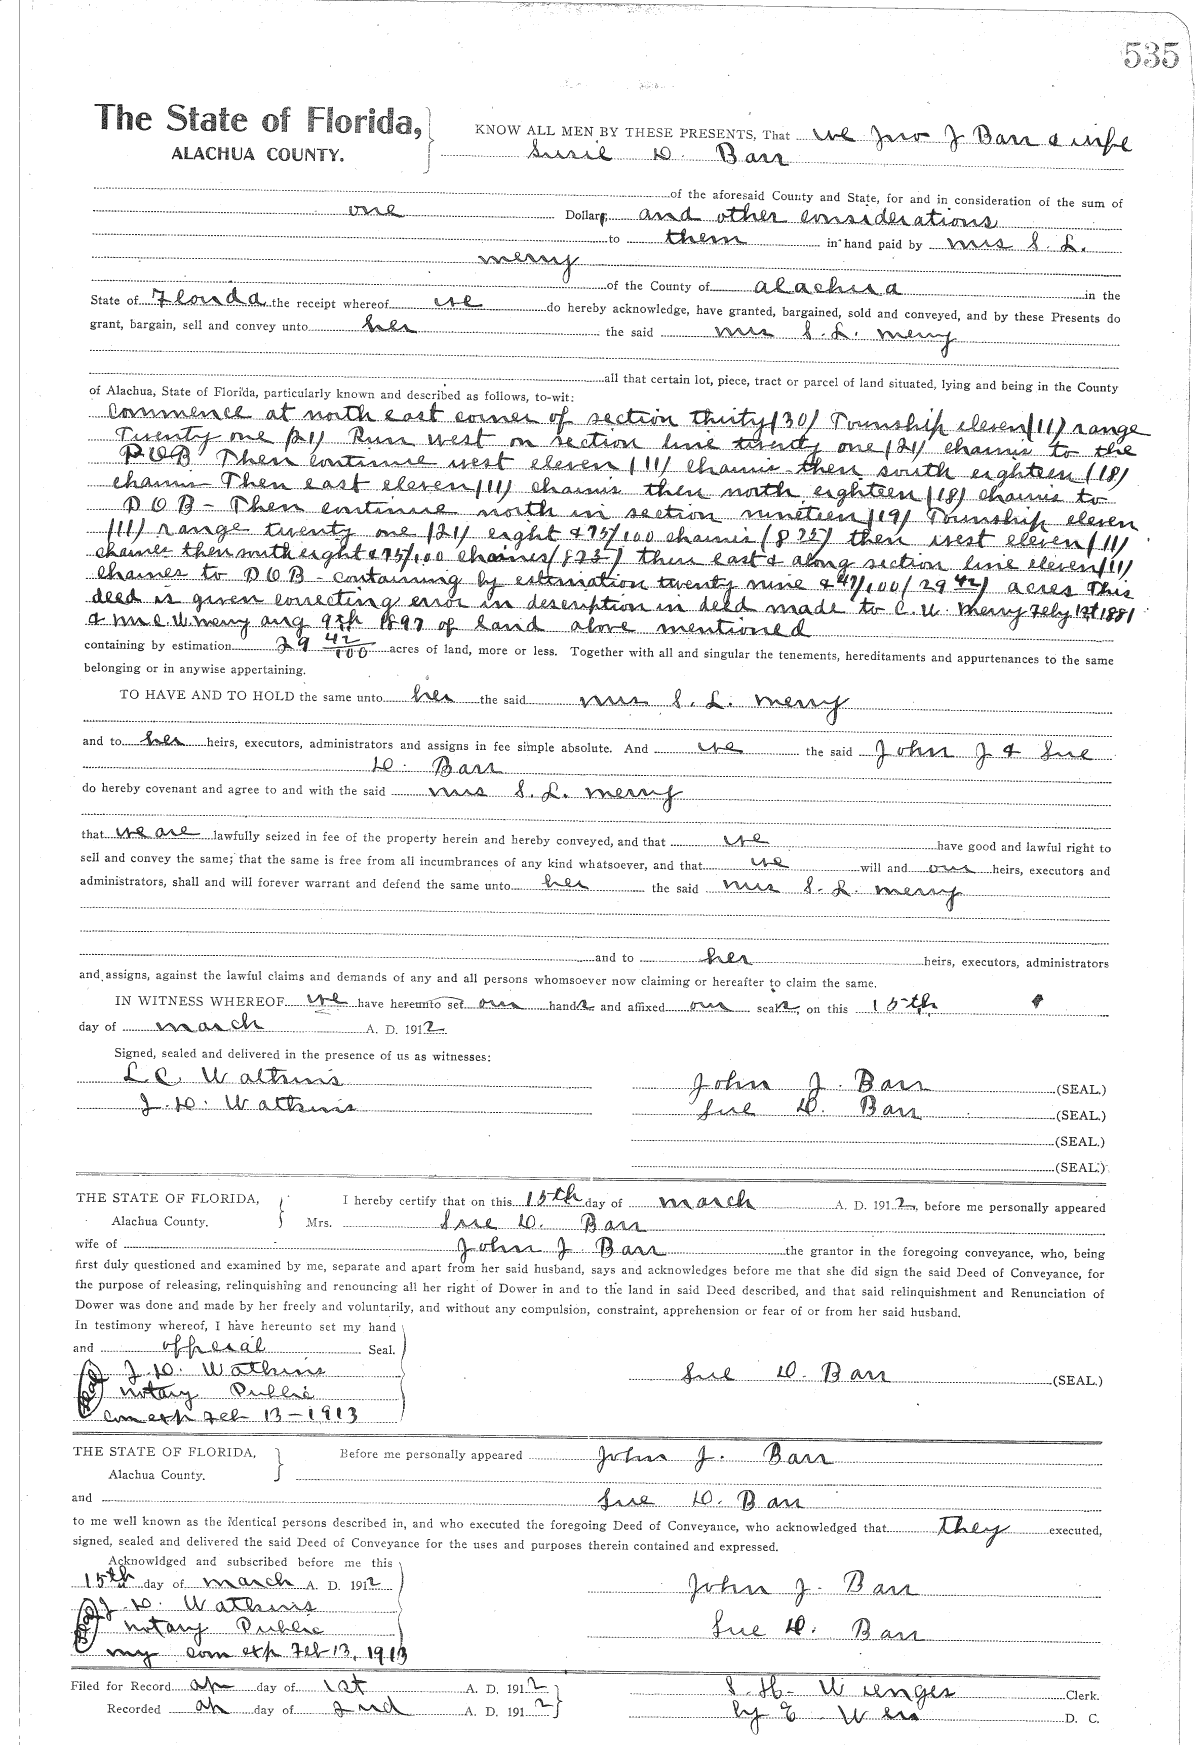 535
The State of Florida,
ALACHUA COUNTY.
KNOW ALL MEN BY THESE PRESENTS, That we Jno J Barr & wife
Susie D. Barr
of the aforesaid County and State, for and in consideration of the sum of
one Dollar, and other considerations
to them in hand paid by mrs S. L.
merry
of the County of alachua in the
State of Florida the receipt whereof we do hereby acknowledge, have granted, bargained, sold and conveyed, and by these Presents do
grant, bargain, sell and convey unto her the said mrs S. L. merry
all that certain lot, piece, tract or parcel of land situated, lying and being in the County
of Alachua, State of Florida, particularly known and described as follows, to-wit:
Commence at north east corner of section thirty (30) Township eleven (11) range
Twenty one (21) Run west on section line twenty one (21) chains to the
P.O.B Then continue west eleven (11) chains then south eighteen (18)
chains Then east eleven (11) chains then north eighteen (18) chains to
P O B - Then continue north in section nineteen (19) Township eleven
(11) range twenty one (21) eight & 75/100 chains (8 75) then west eleven (11)
chains then south eight & 75/100 chains (8 75) then east & along section line eleven (11)
chains to P O B - containing by estimation twenty nine & 42/100 (29 42) acres This
deed is given correcting error in description in deed made to C. W. Merry Feby 1st 1881
& Mr C. W. merry aug 9th 1897 of land above mentioned
containing by estimation 29 42/100 acres of land, more or less. Together with all and singular the tenements, hereditaments and appurtenances to the same
belonging or in anywise appertaining.
TO HAVE AND TO HOLD the same unto her the said mrs S. L. merry
and to her heirs, executors, administrators and assigns in fee simple absolute. And we the said John J & Sue
D. Barr
do hereby covenant and agree to and with the said mrs S. L. merry
that we are lawfully seized in fee of the property herein and hereby conveyed, and that we have good and lawful right to
sell and convey the same; that the same is free from all incumbrances of any kind whatsoever, and that we will and our heirs, executors and
administrators, shall and will forever warrant and defend the same unto her the said mrs S. L. merry
and to her heirs, executors, administrators
and assigns, against the lawful claims and demands of any and all persons whomsoever now claiming or hereafter to claim the same.
IN WITNESS WHEREOF we have hereunto set our hands and affixed our seals, on this 15th
day of march A. D. 1912
Signed, sealed and delivered in the presence of us as witnesses:
L C. Watkins
J. D. Watkins
John J. Barr (SEAL.)
Sue D. Barr (SEAL.)
(SEAL.)
(SEAL.)
THE STATE OF FLORIDA,
Alachua County.
I hereby certify that on this 15th day of march A. D. 1912, before me personally appeared
Mrs. Sue D. Barr
wife of John J Barr the grantor in the foregoing conveyance, who, being
first duly questioned and examined by me, separate and apart from her said husband, says and acknowledges before me that she did sign the said Deed of Conveyance, for
the purpose of releasing, relinquishing and renouncing all her right of Dower in and to the land in said Deed described, and that said relinquishment and Renunciation of
Dower was done and made by her freely and voluntarily, and without any compulsion, constraint, apprehension or fear of or from her said husband.
In testimony whereof, I have hereunto set my hand
and official Seal.
J. D. Watkins
notary Public
Com exp Feb 13-1913
Sue D. Barr (SEAL.)
THE STATE OF FLORIDA,
Alachua County.
Before me personally appeared John J. Barr
and Sue D. Barr
to me well known as the identical persons described in, and who executed the foregoing Deed of Conveyance, who acknowledged that they executed,
signed, sealed and delivered the said Deed of Conveyance for the uses and purposes therein contained and expressed.
Acknowldged and subscribed before me this
15th day of march A. D. 1912
J. D. Watkins
notary Public
my com exp Feb 13, 1913
John J. Barr
Sue D. Barr
Filed for Record ap day of 1st A. D. 1912
Recorded ap day of 2nd A. D. 1912
S. H. Wienges Clerk.
by E D. C.